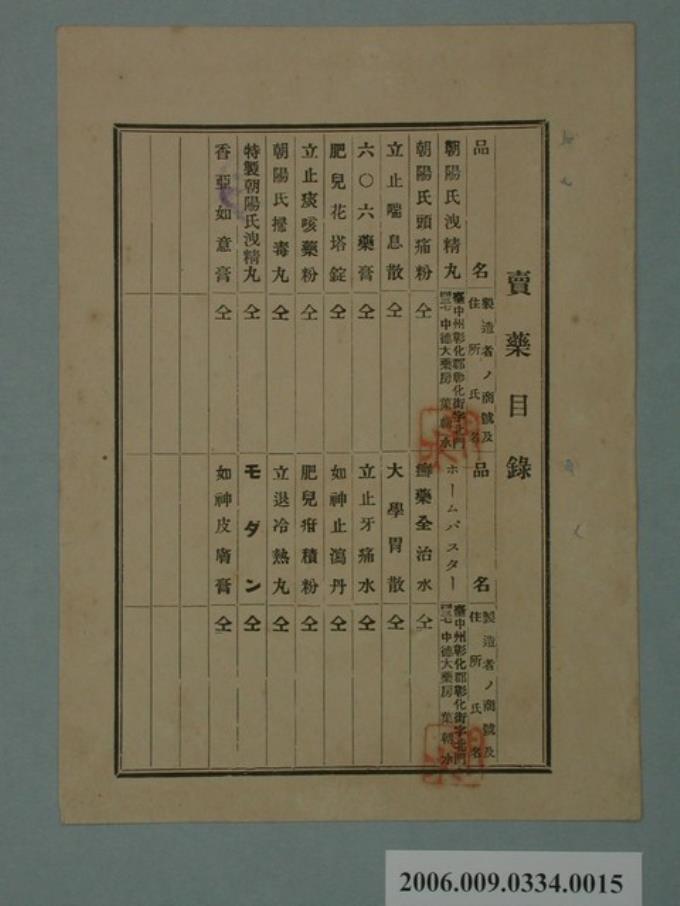 賣藥目錄
品名
製造者ノ商號及住所氏名
朝陽氏洩精丸
臺中州彰化郡彰化街字北門
中德大藥房 葉朝水
朝陽氏頭痛粉 仝
立止喘息散 仝
六〇六藥膏 仝
肥兒花塔錠 仝
立止痰咳藥粉 仝
朝陽氏掃毒丸 仝
特製朝陽氏洩精丸 仝
香亞如意膏 仝
品名
製造者ノ商號及住所氏名
ホームパスター
臺中州彰化郡彰化街字北門
中德大藥房 葉朝水
癬藥全治水 仝
大學胃散 仝
立止牙痛水 仝
如神止瀉丹 仝
肥兒疳積粉 仝
立退冷熱丸 仝
モダン 仝
如神皮膚膏 仝
2006.009.0334.0015